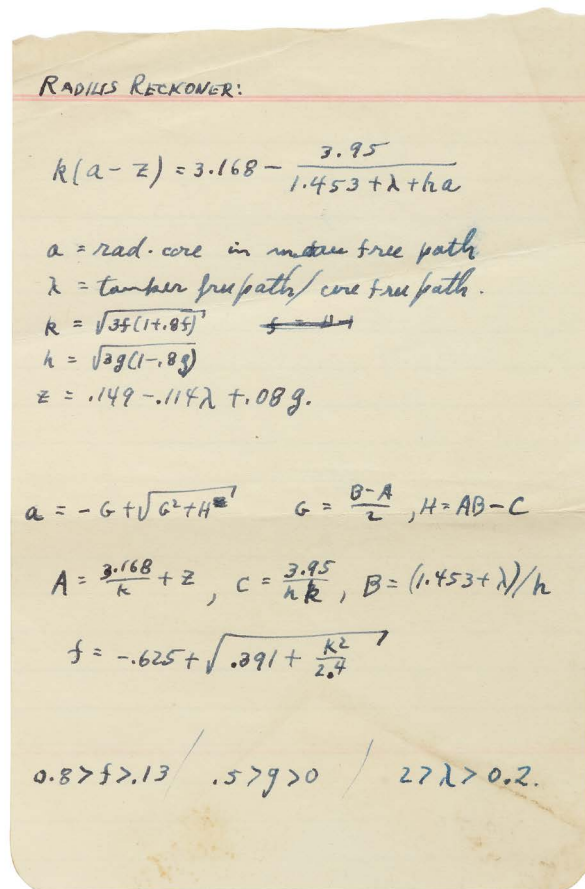 RADIUS RECKONER:
k(a - z) = 3.168 - 3.95 / (1.453 + λ + ha)
a = rad. core in mean free path
λ = tamper free path / core free path.
k = √3f(1+.8f)
h = √3g(1-.8g)
z = .149 - .114λ + .08g.
a = -G + √G² + H   G = (B-A)/2 , H = AB - C
A = 3.168/k + z , C = 3.95/hk , B = (1.453 + λ)/h
f = -.625 + √.391 + k²/2.4
0.8 > f > .13 / .5 > g > 0 / 2 > λ > 0.2.